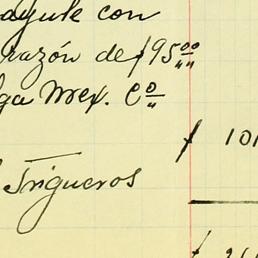 ayule con
razón de $95.00
ga Mex. Co
$ 101
Trigueros